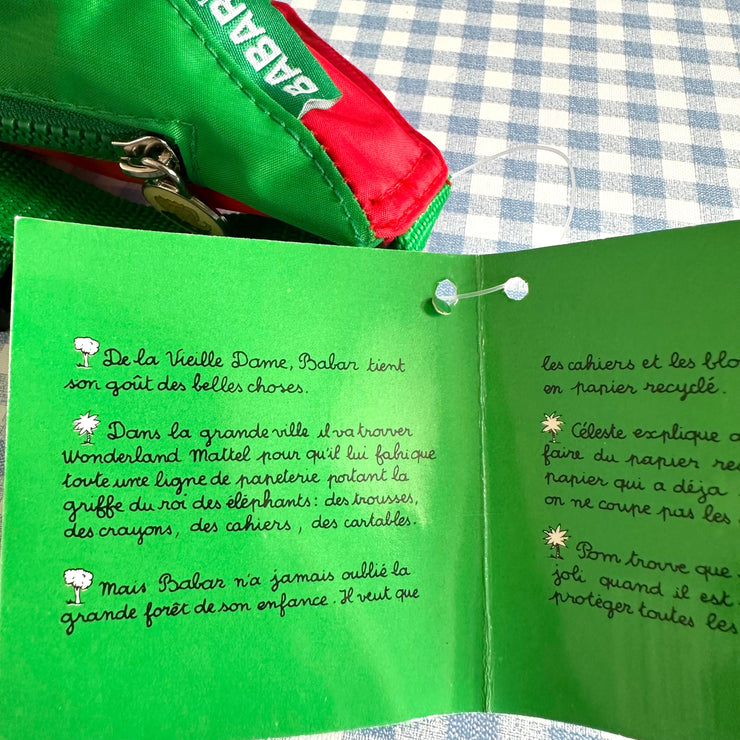 BABAR
De la Vieille Dame, Babar tient
son goût des belles choses.
Dans la grande ville il va trouver
Wonderland Mattel pour qu'il lui fabrique
toute une ligne de papeterie portant la
griffe du roi des éléphants : des trousses,
des crayons, des cahiers, des cartables.
Mais Babar n'a jamais oublié la
grande forêt de son enfance. Il veut que
les cahiers et les blo
en papier recyclé.
Céleste explique
faire du papier
papier qui a déjà
on ne coupe pas les
Pom trouve que
joli quand il est
protéger toutes les